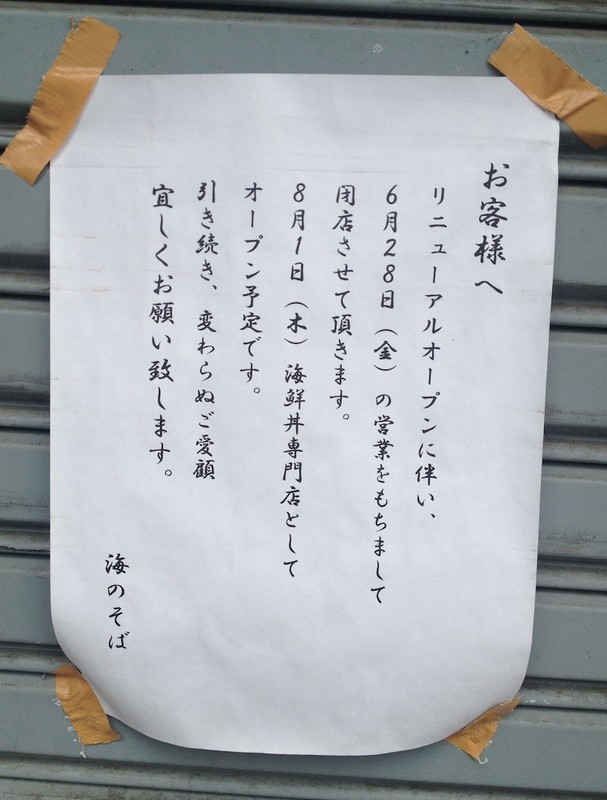 お客様へ
リニューアルオープンに伴い、
6月28日（金）の営業をもちまして
閉店させて頂きます。
8月1日（木）海鮮丼専門店として
オープン予定です。
引き続き、変わらぬご愛顧
宜しくお願い致します。
海のそば